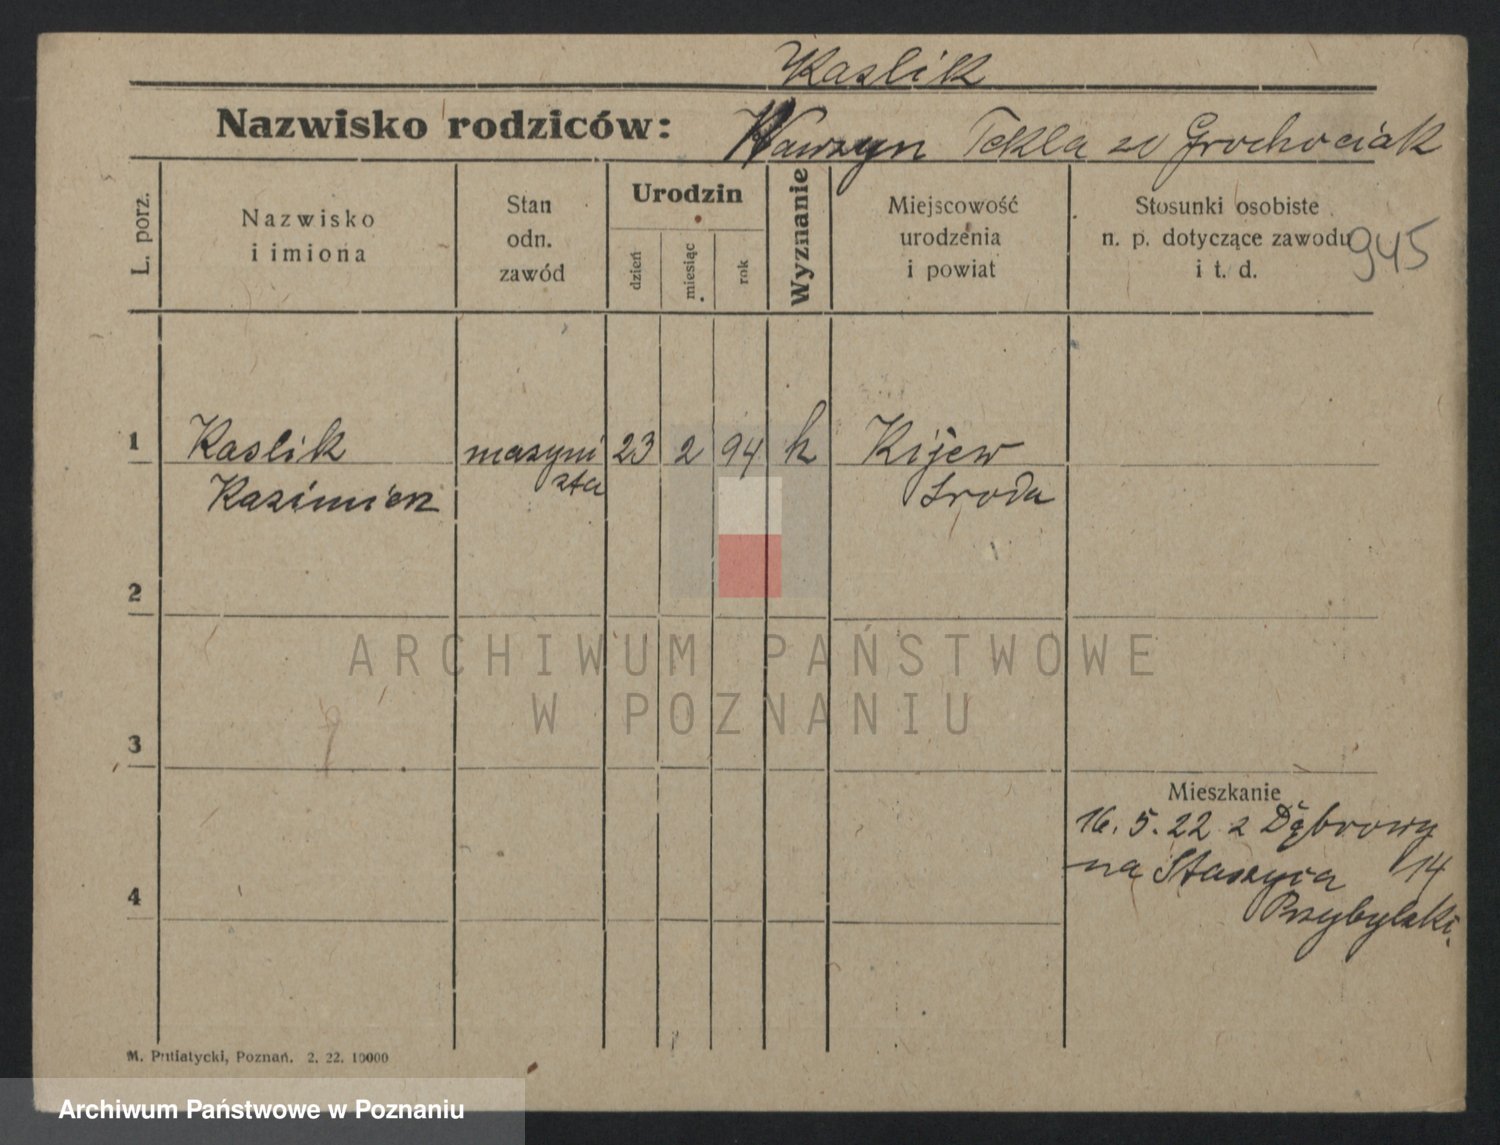 Kaslik
Nazwisko rodziców: Wawrzyn Tekla zd Grochociak
L. porz.
Nazwisko
i imiona
Stan
odn.
zawód
Urodzin
dzień
miesiąc
rok
Wyznanie
Miejscowość
urodzenia
i powiat
Stosunki osobiste
n. p. dotyczące zawodu
i t. d.
945
1 Kaslik maszyni 23 2 94 k Kijew
Kazimierz sta Sroda
2
3
4
Mieszkanie
16. 5. 22 z Dąbrowy
na Staszyca 14
Przybylski
M. Putiatycki, Poznań. 2. 22. 10000
ARCHIWUM PAŃSTWOWE
W POZNANIU
Archiwum Państwowe w Poznaniu